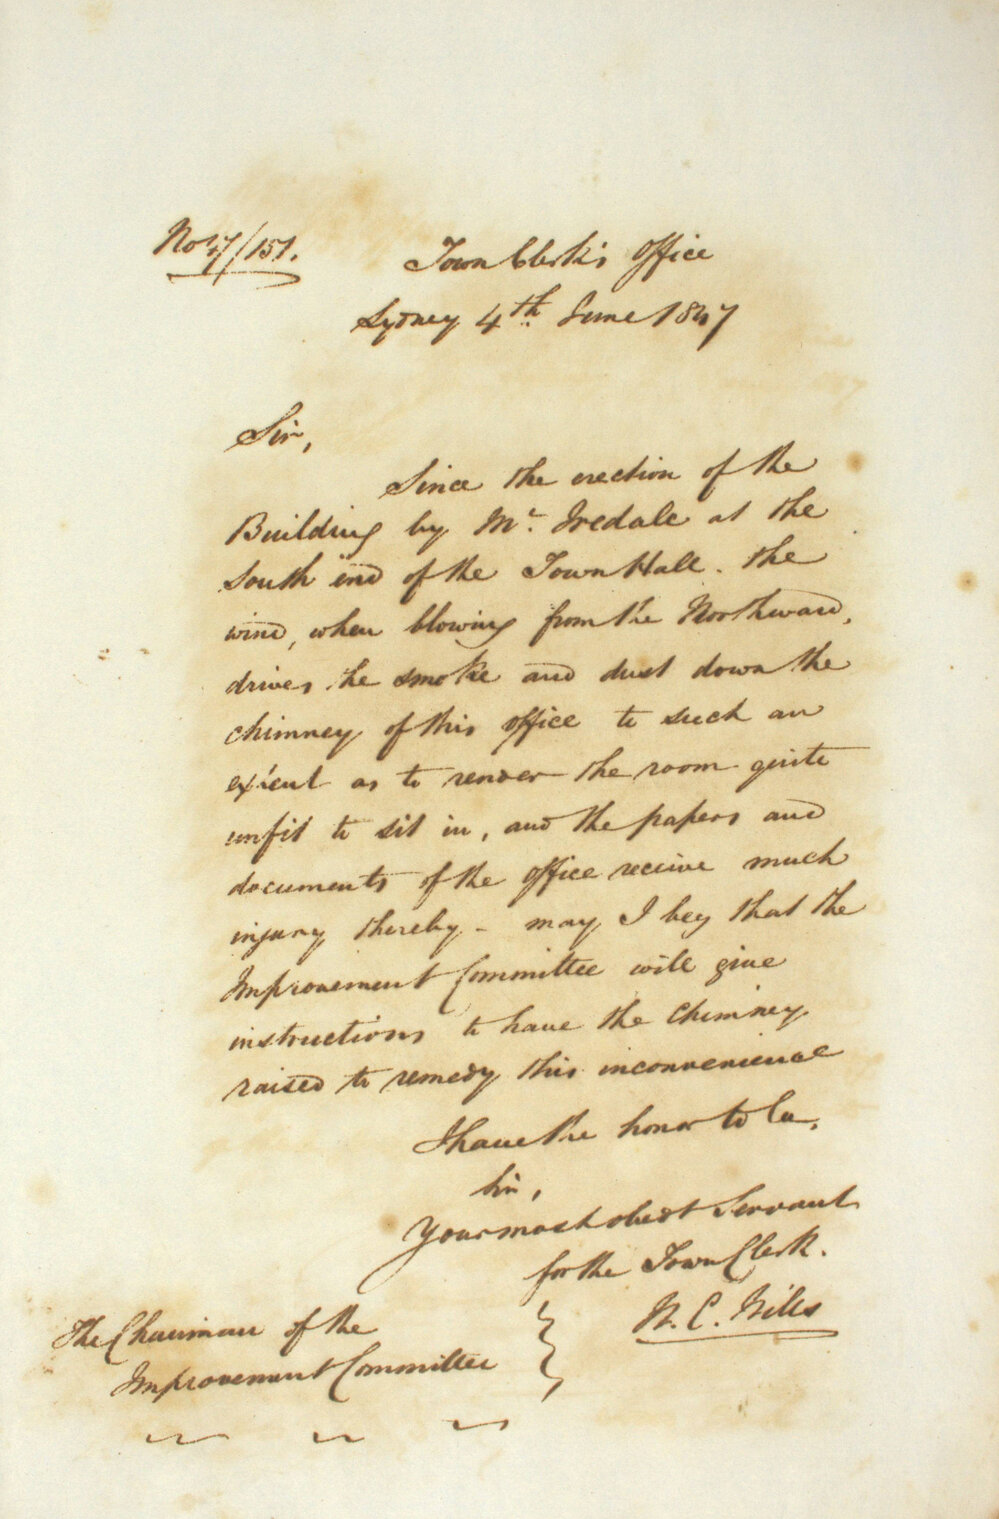 No 47/151.
Town Clerk's Office
Sydney 4th June 1847
Sir,
Since the erection of the
Building by Mr. Iredale at the
South end of the Town Hall. the
wind, when blowing from the Northward,
drives the smoke and dust down the
chimney of this office to such an
extent as to render the room quite
unfit to sit in, and the papers and
documents of the office receive much
injury thereby - may I beg that the
Improvement Committee will give
instructions to have the Chimney
raised to remedy this inconvenience
I have the honor to be,
Sir,
Your most obedt Servant
for the Town Clerk.
C.
The Chairman of the
Improvement Committee